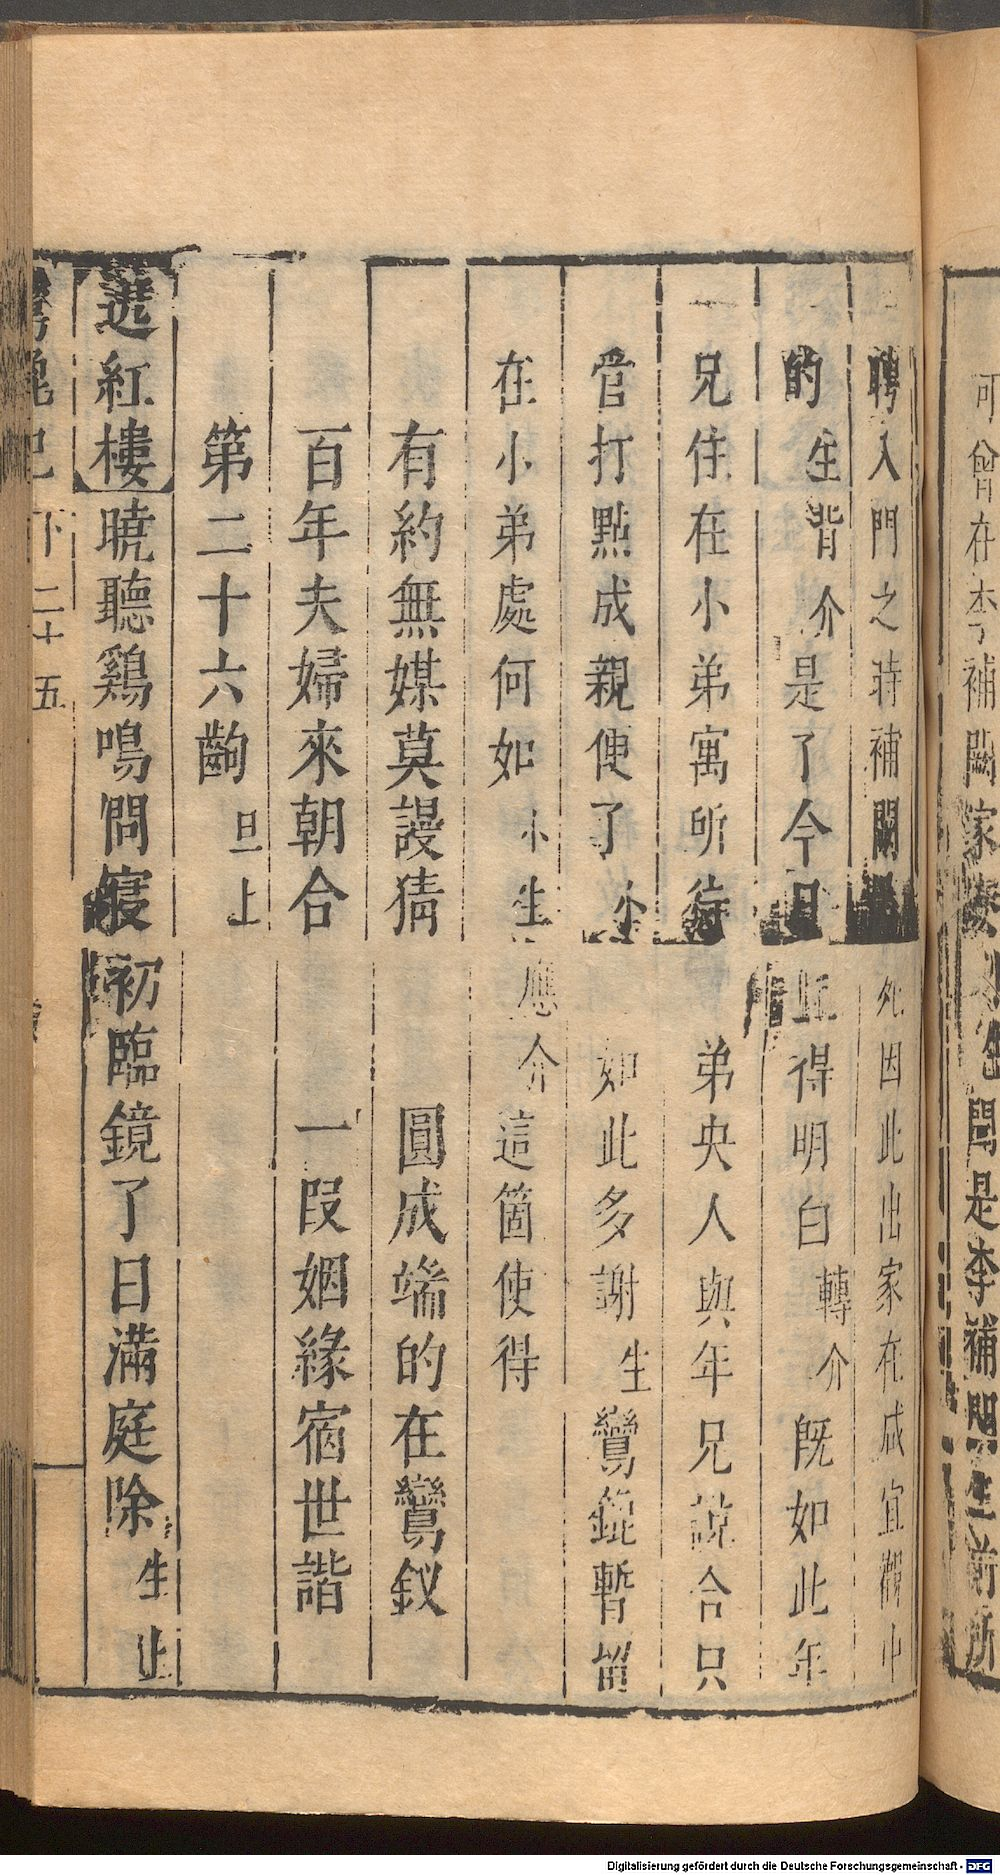 可曾在李補闕家
生問是李補闕生前所
聘入門之時補闕
死因此出家在咸宜觀中
的生背介是了今日
且得明白轉介既如此年
兄住在小弟寓所待
弟央人與年兄說合只
管打點成親便了小
如此多謝生鸞鎞暫留
在小弟處何如小生
應介這箇使得
有約無媒莫謾猜
圓成端的在鸞釵
百年夫婦來朝合
一段姻緣宿世諧
第二十六齣旦上
遶紅樓曉聽鷄鳴問寢
初臨鏡了日滿庭除生上
鸞鎞記
下二十五
Digitalisierung gefördert durch die Deutsche Forschungsgemeinschaft - DFG